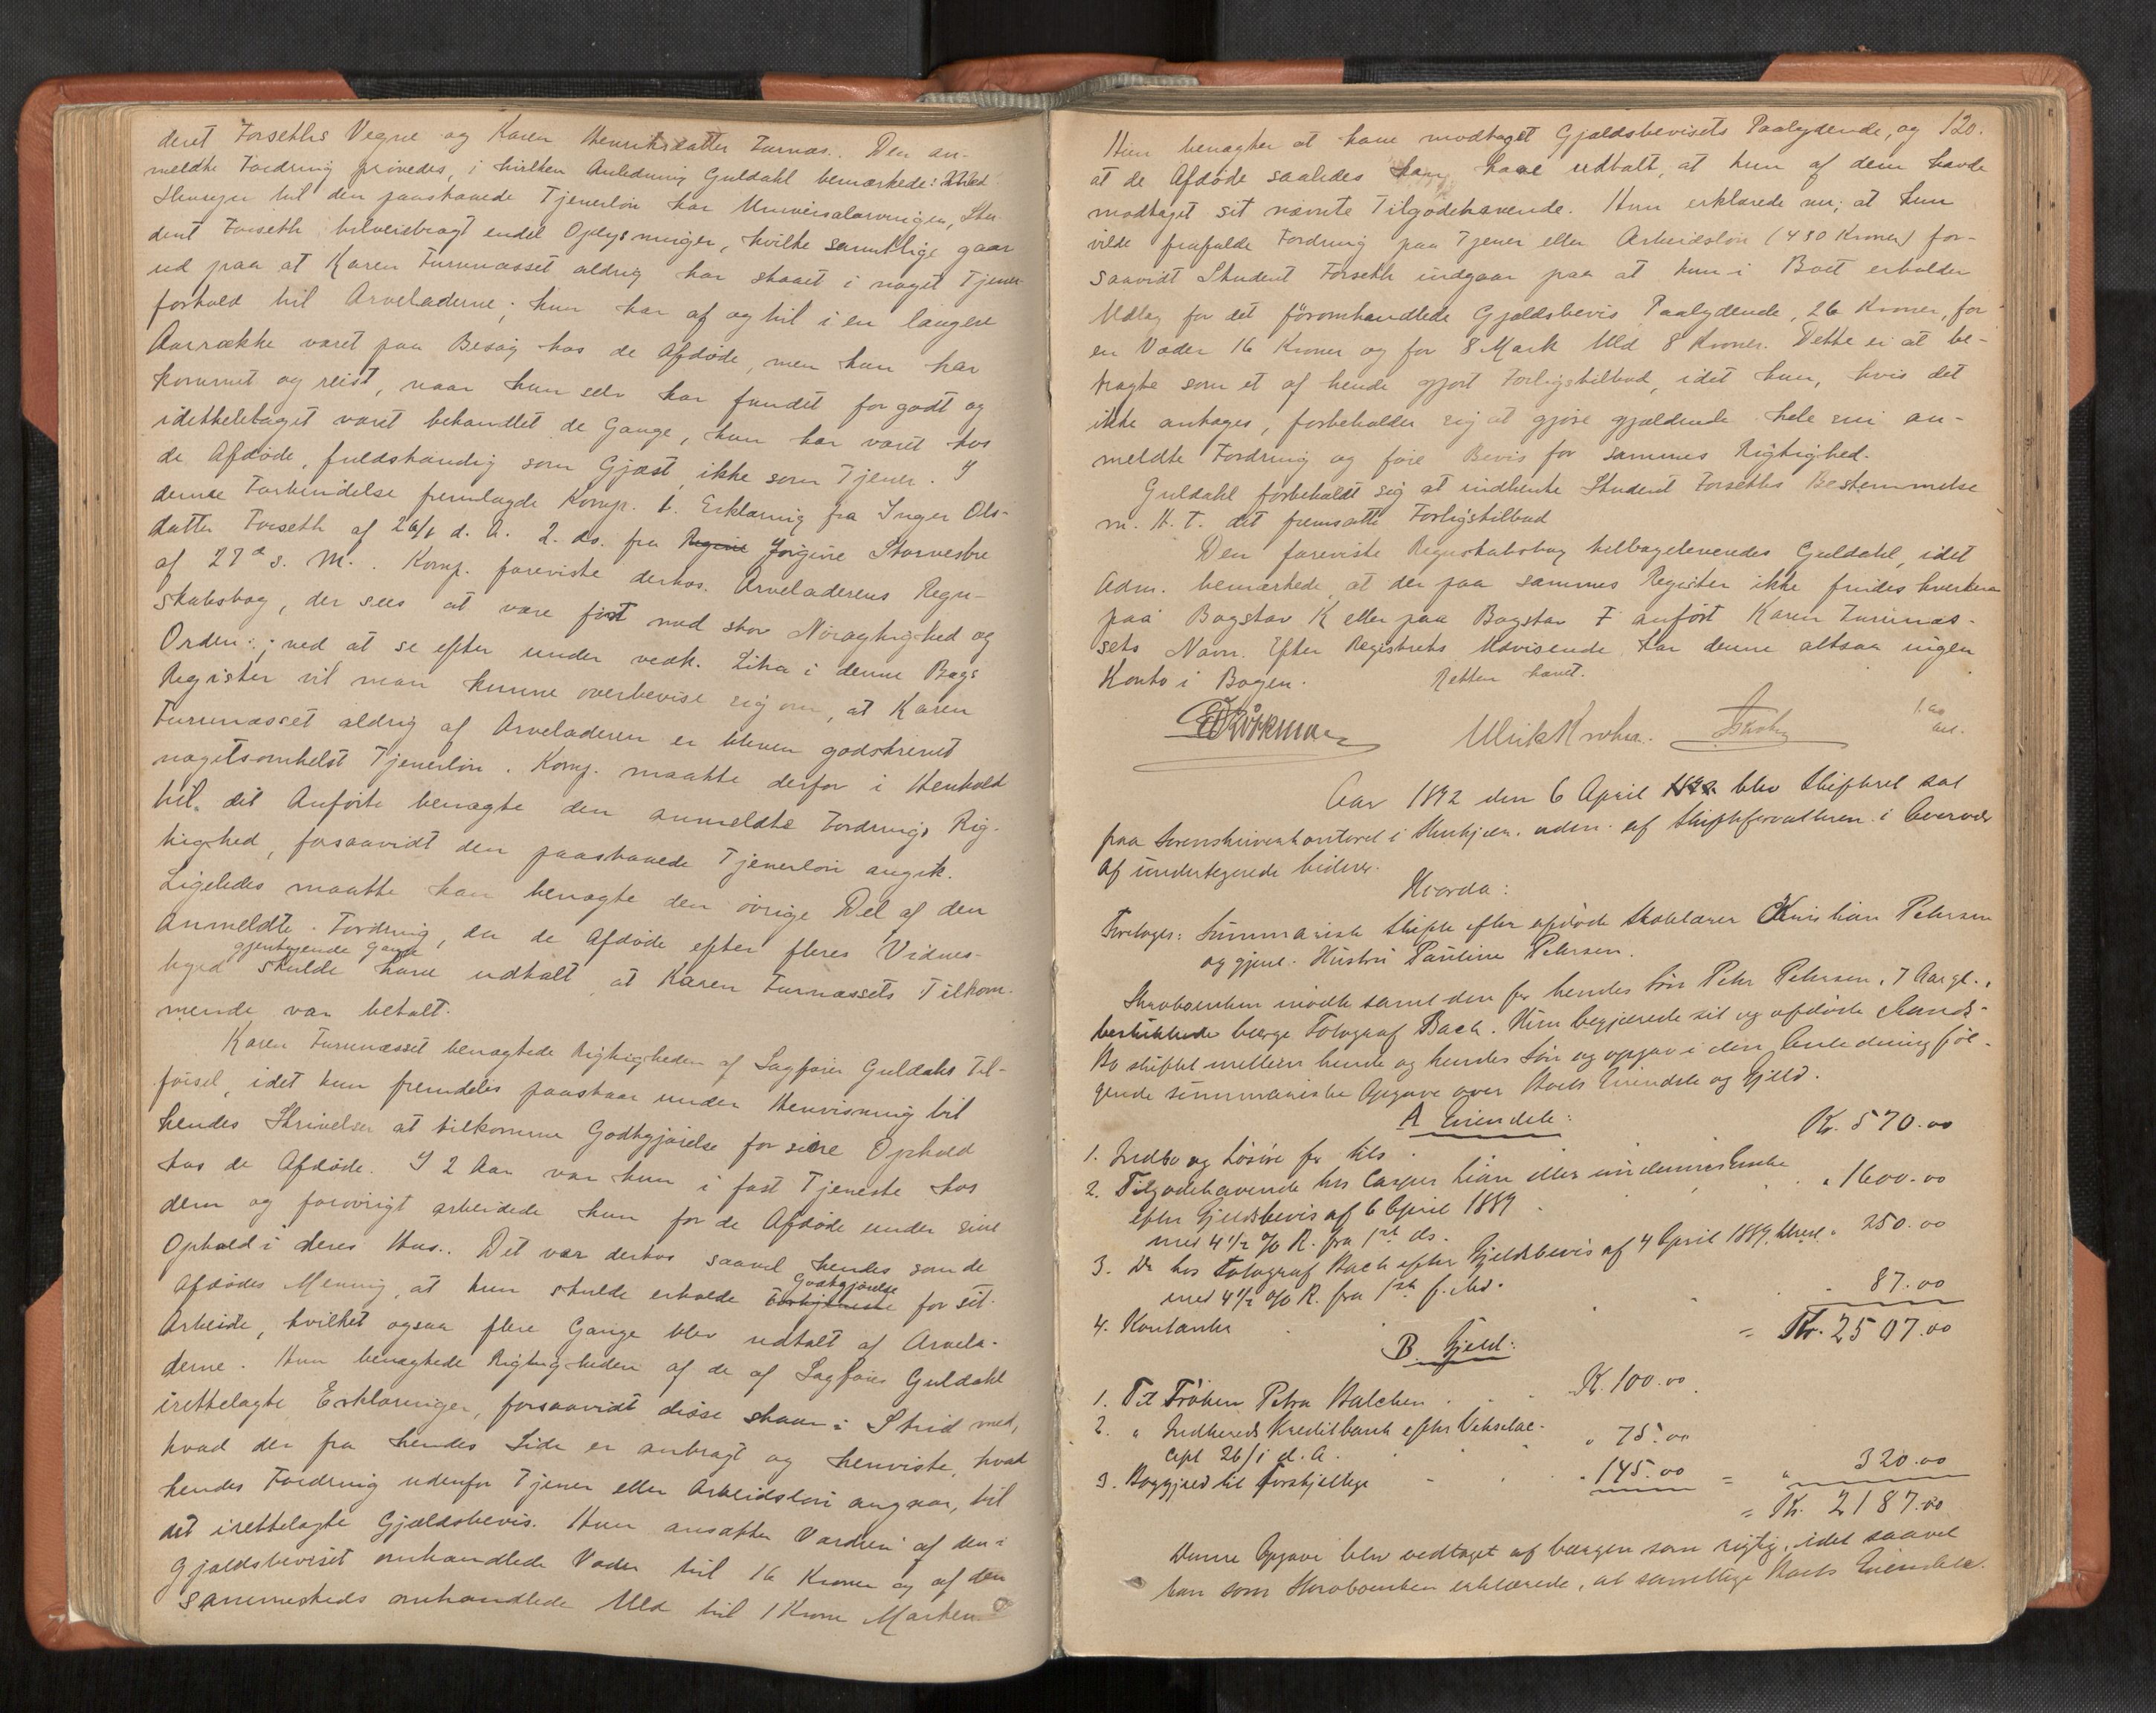 dent Forseths Vegne og Karen Henriksdatter Furnæs. Den an-
meldte Fordring prøvedes, i hvilken Anledning Guldahl bemærkede: Med
Hensyn til den paastaaede Tjenerløn har Universalarvingen, Stu-
dent Forseth tilveiebragt endel Oplysninger, hvilke samtlige gaar
ud paa at Karen Furunæsset aldrig har staaet i noget Tjener-
forhold til Arveladerne; hun har af og til i en længere
Aarrække været paa Besøg hos de Afdøde, men hun har
kommet og reist, naar hun selv har fundet for godt og
idetheletaget været behandlet de Gange, hun har været hos
de Afdøde, fuldstændig som Gjæst, ikke som Tjener. I
denne Forbindelse fremlagde Komp. 1. Erklæring fra Inger Ols-
datter Forseth af 26/1 d. A. 2. do. fra Regine Jørgine Storvestre
af 27d s. M. Komp. foreviste derhos Arveladerens Regn-
skabsbog, der sees at være ført med stor Nøiagtighed og
Orden; ved at se efter under vedk. Litra i denne Bogs
Register vil man kunne overbevise sig om, at Karen
Furunæsset aldrig af Arveladeren er bleven godskrevet
nogetsomhelst Tjenerløn. Komp. maatte derfor i Henhold
til det Anførte benægte den anmeldte Fordrings Rig-
tighed, forsaavidt den paastaaede Tjenerløn angik.
Ligeledes maatte han benægte den øvrige Del af den
anmeldte Fordring, da de Afdøde efter fleres Vidnes-
gjentagende Gange
byrd skulde have udtalt, at Karen Furnæssets Tilkom-
mende var betalt.
Karen Furunæsset benægtede Rigtigheden af Sagfører Guldahls Til-
førsel, idet hun fremdeles paastaar under Henvisning til
hendes Skrivelser at tilkomme Godtgjørelse for sine Ophold
hos de Afdøde. I 2 Aar var hun i fast Tjeneste hos
dem og forøvrigt arbeidede hun for de Afdøde under sine
Ophold i deres Hus. Det var derhos saavel hendes som de
Afdødes Mening, at hun skulde erholde Fortjeneste Godtgjørelse for sit
Arbeide, hvilket ogsaa flere Gange blev udtalt af Arvela-
derne. Hun benægtede Rigtigheden af de af Sagfører Guldahl
irettelagte Erklæringer, forsaavidt disse staar i Strid med,
hvad der fra hendes Side er anbragt og henviste, hvad
hendes Fordring udenfor Tjener eller Arbeidsløn angaar, til
det irettelagte Gjældsbevis. Hun ansatte Værdien af den i
Gjældsbeviset omhandlede Vader til 16 Kroner og af den
sammesteds omhandlede Uld til 1 Krone Marken
120.
Hun benægter at have modtaget Gjældsbevisets Paalydende, og
at de Afdøde saaledes have udtalt, at hun af dem havde
modtaget sit nævnte Tilgodehavende. Hun erklærede nu, at hun
vilde frafalde Fordring paa Tjener eller Arbeidsløn (480 Kroner) for-
saavidt Student Forseth indgaar paa at hun i Boet erholder
Udlæg for det føromhandlede Gjældsbevis Paalydende, 26 Kroner, for
en Vader 16 Kroner og for 8 Mark Uld 8 Kroner. Dette er at be-
tragte som et af hende gjort Forligstilbud, idet hun, hvis det
ikke antages, forbeholder sig at gjøre gjældende hele sin an-
meldte Fordring og føre Bevis for sammes Rigtighed.
Guldahl forbeholdt sig at indhente Student Forseths Bestemmelse
m. H. T. det fremsatte Forligstilbud
Den foreviste Regnskabsbog tilbageleveredes Guldahl, idet
Adm. bemærkede, at der paa sammes Register ikke findes hverken
paa Bogstav K eller paa Bogstav F anført Karen Furunæs-
sets Navn. Efter Registrets Udvisende har denne altsaa ingen
Konto i Bogen. Retten hævet.
Aar 1892 den 6 April 1892 blev Skifteret sat
paa Sorenskriverkontoret i Stenkjær adm. af Skifteforvalteren i Overvær
af undertegnede Vidner.
Hvorda:
Foretoges: Summarisk Skifte efter afdøde Skolelærer Christian Petersen
og gjenl. Hustru Pauline Petersen.
Skrabøenken mødte samt den for hendes Søn Peter Petersen, 7 Aar gl.,
beskikkede Værge Fotograf Bach. Hun begjærede sit og afdøde Mands
Bo skiftet mellem hende og hendes Søn og opgav i den Anledning føl-
gende summariske Opgave over Boets Eiendele og Gjeld.
A Eiendele:
1. Indbo og Løsøre for tils. Kr. 570.00
2. Tilgodehavende hos Casper Lian eller
efter Gjeldsbevis af 6 April 1889 " 1600.00
med 4 1/2 % R. fra 1ste ds.
3. Do hos Fotograf Bach efter Gjeldsbevis af 4 April 1889 " 250.00
med 4 1/2 % R. fra 1ste f. Md.
4. Kontanter 87.00
= Kr. 2507.00
B Gjeld:
1. Til Frøken Petra Balchen Kr. 100.00
2. " Indherreds Kreditbank efter Vekselac-
cept 26/1 d. A. " 75.00
3. Boggjeld til Forskjellige " 145.00 = " 320.00
= Kr. 2187.00
Denne Opgave blev vedtaget af Værgen som rigtig, idet saavel
han som Skrabøenken erklærede, at samtlige Boets Eiendele